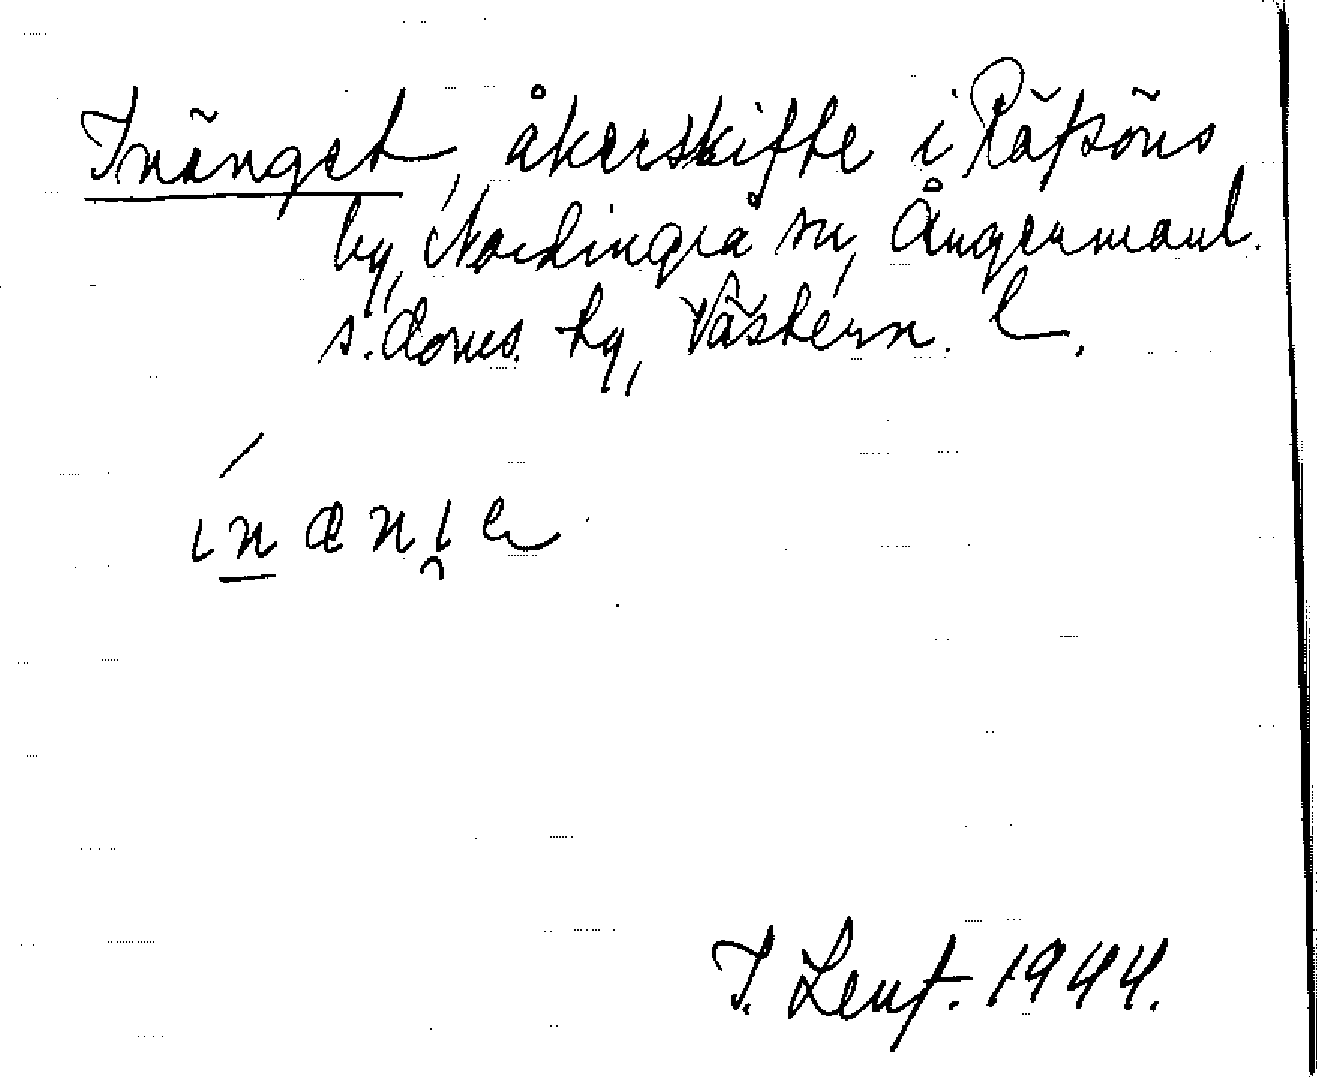 Inänget, åkerskifte i Räfsöns
by, Nordingrå sn, Ångermanl.
s. doms. hg, Västern. l.
T. Lenf. 1944.